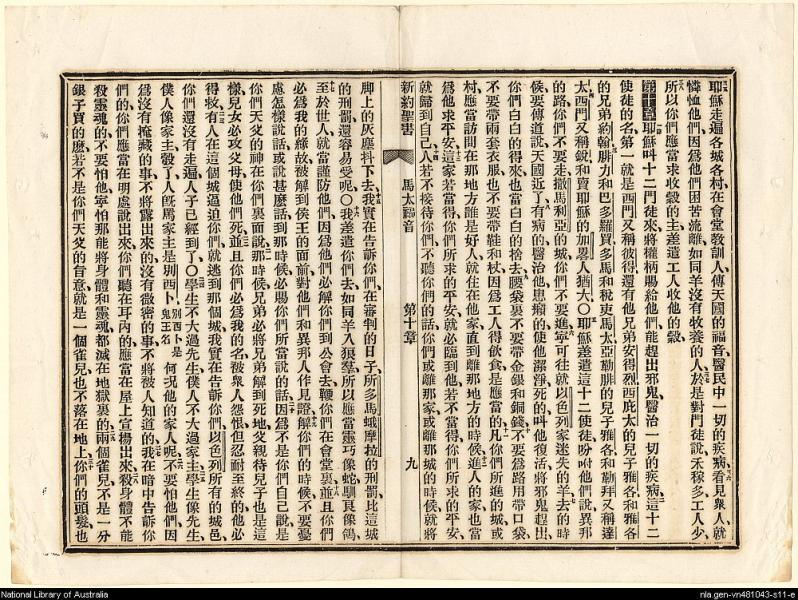 耶穌走遍各城各村在會堂教訓人傳天國的福音醫民中一切的疾病看見衆人就
憐恤他們因爲他們困苦流離如同羊沒有牧養的人於是對門徒說禾稼多工人少
所以你們應當求收穀的主差遣工人收他的穀
第十章耶穌叫十二門徒來將權柄賜給他們能趕出邪鬼醫治一切的疾病這十二
使徒的名第一就是西門又稱彼得還有他兄弟安得烈西庇太的兒子雅各和雅各
的兄弟約翰腓力和巴多羅買多馬和稅吏馬太亞勒腓的兒子雅各和勒拜又稱達
太西門又稱銳和賣耶穌的加畧人猶大〇耶穌差遣這十二使徒吩咐他們說異邦
的路你們不要走撒馬利亞的城你們不要進寧可往就以色列家迷失的羊去的時
候要傳道說天國近了有病的醫治他患癩的使他潔淨死的叫他復活將邪鬼趕出
你們白白的得來也當白白的捨去腰袋裏不要帶金銀和銅錢不要爲路用帶口袋
不要帶兩套衣服也不要帶鞋和杖因爲工人得飲食是應當的凡你們所進的城或
村應當訪問在那地方誰是好人就住在他家直到離那地方的時候進人的家也當
爲他求平安這家若當得你們所求的平安就必臨到他若不當得你們所求的平安
就歸到自己人若不接待你們不聽你們的話你們或離那家或離那城的時候就將
新約聖書 馬太福音 第十章 九
脚上的灰塵抖下去我實在告訴你們在審判的日子所多馬蛾摩拉的刑罰比這城
的刑罰還容易受呢〇我差遣你們去如同羊入狼羣所以應當靈巧像蛇馴良像鴿
至於世人就當謹防他們因爲他們必解你們到公會去鞭你們在會堂裏並且你們
必爲我的緣故被解到侯王的面前對他們和異邦人作見證解你們的時候不要憂
慮怎樣說話或說甚麼話到那時候必賜你們所當說的話因爲不是你們自己說是
你們天父的神在你們裏面說那時候兄弟必將兄弟解到死地父親待兒子也是這
樣兒女必攻父母使他們死並且你們必爲我的名被衆人怨恨但忍耐至終的他必
得救有人在這個城逼迫你們就逃到那個城我實在告訴你們以色列所有的城邑
你們還沒有走遍人子已經到了〇學生不大過先生僕人不大過家主學生像先生
僕人像家主彀了人旣罵家主是別西卜別西卜是鬼王名何況他的家人呢不要怕他們因
爲沒有掩藏的事不將露出來的沒有微密的事不將被人知道的我在暗中告訴你
們的你們應當在明處說出來你們聽在耳內的應當在屋上宣揚出來殺身體不能
殺靈魂的不要怕他寧怕那能將身體和靈魂都滅在地獄裏的兩個雀兒不是一分
銀子買的麽若不是你們天父的旨意就是一個雀兒也不落在地上你們的頭髮也
National Library of Australia
nla.gen-vn481043-s11-e